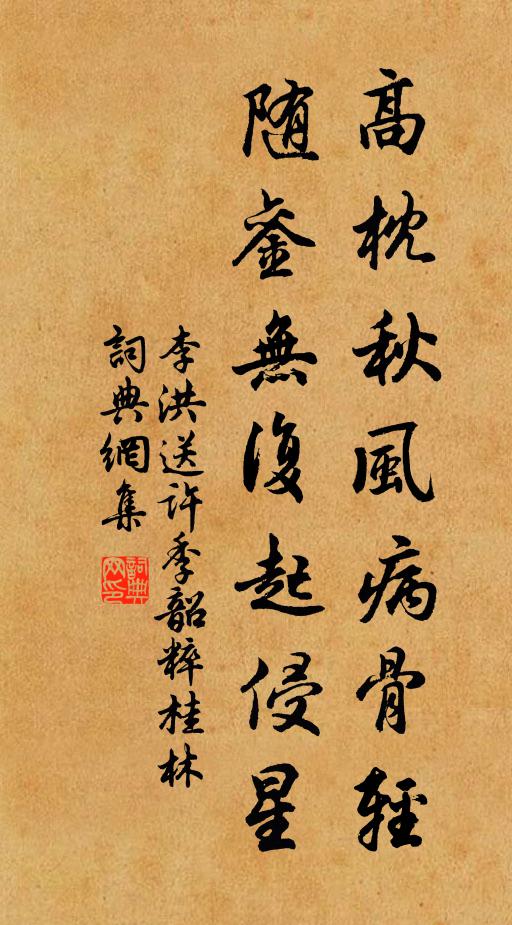 高枕秋風病骨輕
随銮無復起侵星
李洪送許季韶粹桂林
詞典網集
詞典网印